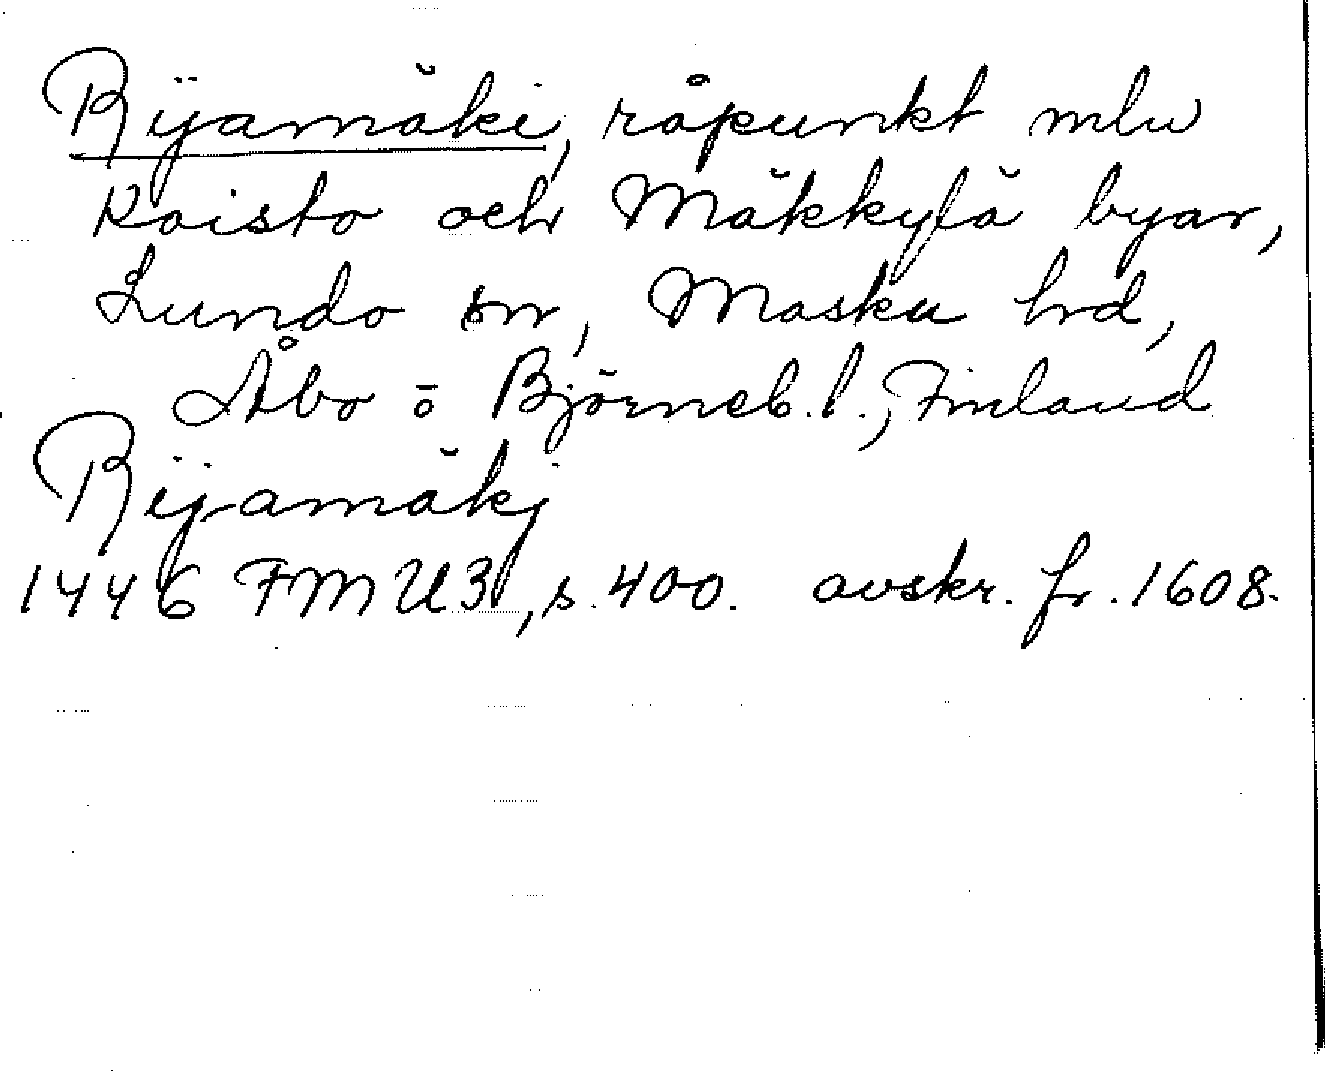 Rijamäki, råpunkt mlw
Raisto och Mäkkylä byar,
Lundo sn, Masku hd,
Åbo o Björneb. l., Finland
Rijamäkj
1446 FMU 3, s. 400. avskr. fr. 1608.